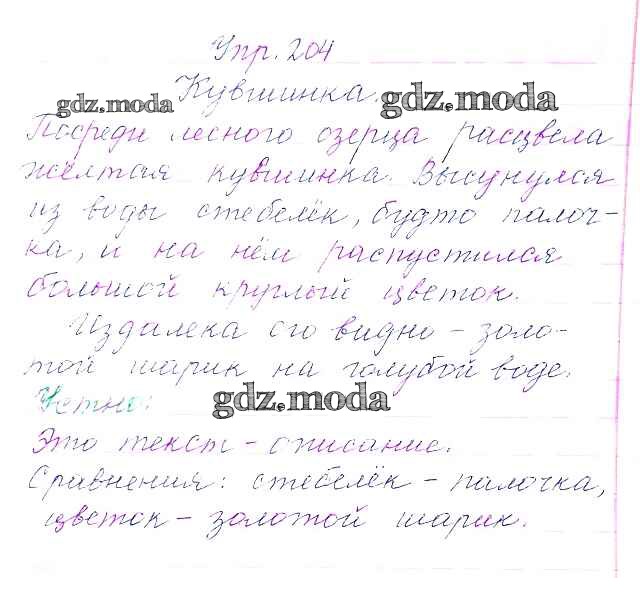 Упр. 204
Кувшинка.
gdz.moda gdz.moda
Посреди лесного озерца расцвела
жёлтая кувшинка. Высунулся
из воды стебелёк, будто палоч-
ка, и на нём распустился
большой круглый цветок.
Издалека его видно - золо-
той шарик на голубой воде.
Устно:
gdz.moda
Это текст - описание.
Сравнения: стебелёк - палочка,
цветок - золотой шарик.